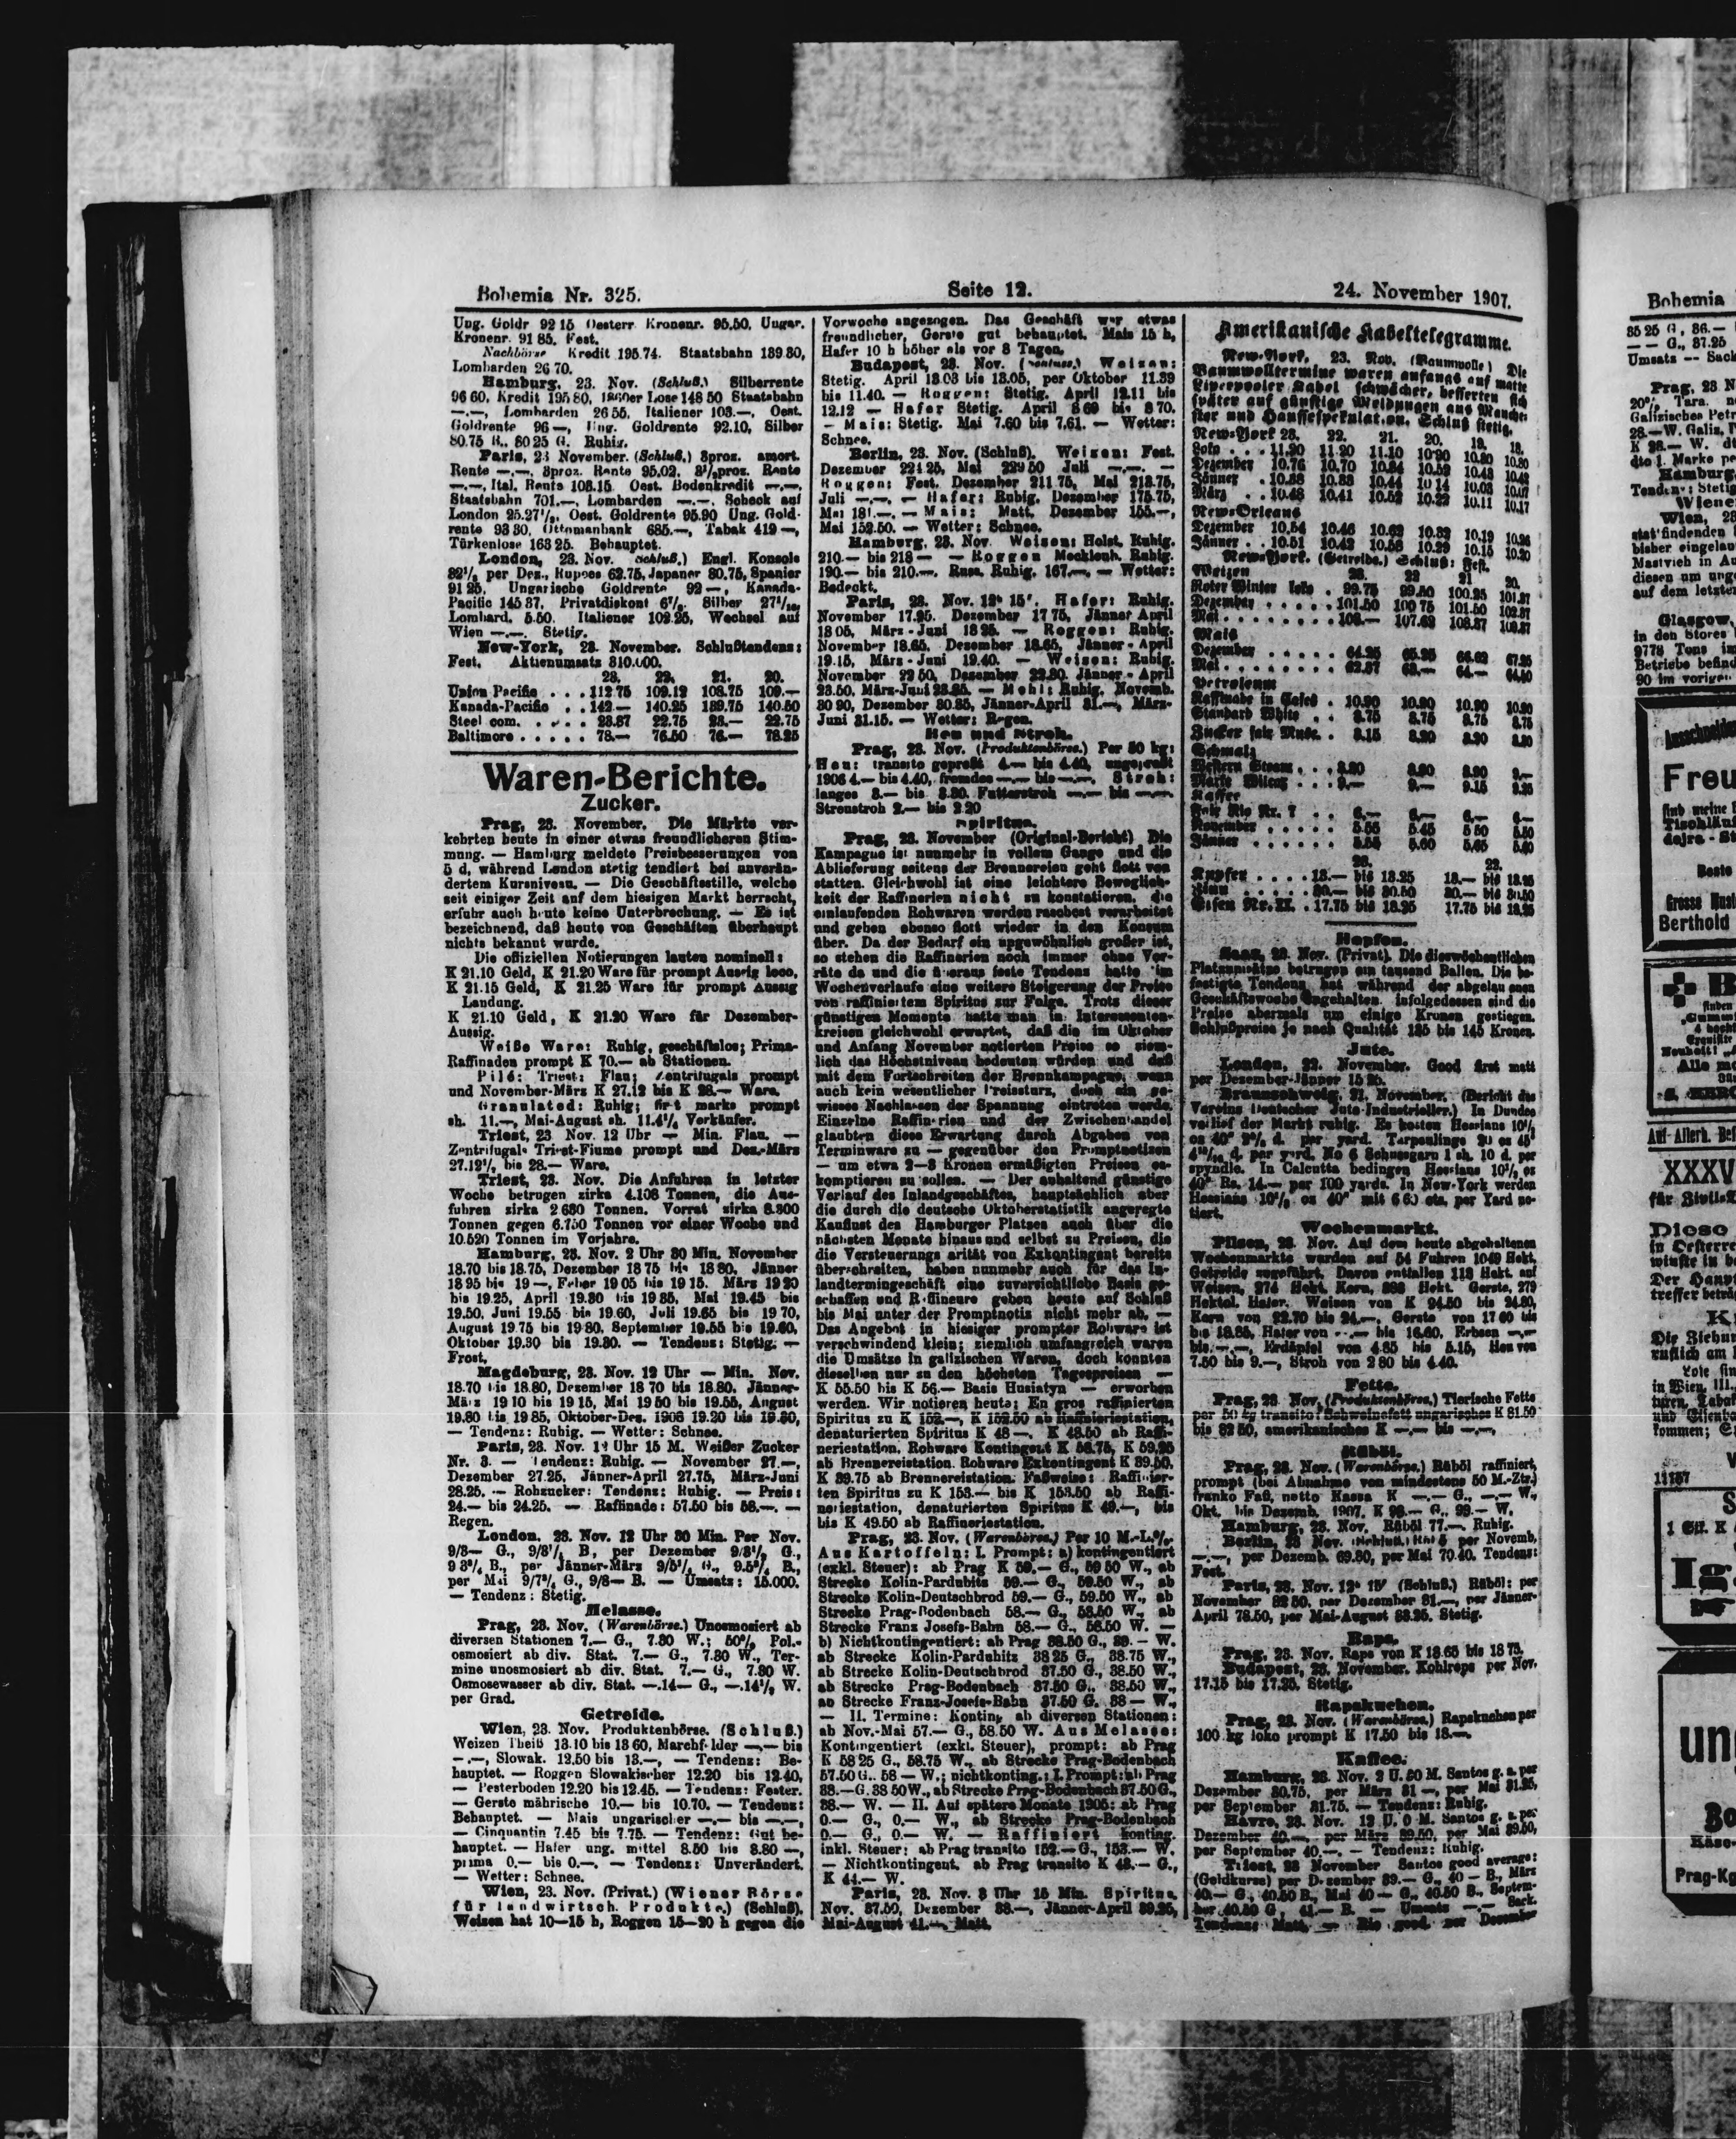 Bohemia Nr. 325.
Seite 12.
24. November 1907.
Ung. Goldr 92 15 Oesterr Kronenr. 95.50, Ungar.
Kronenr. 91 85. Fest.
Nachbörse Kredit 195.74. Staatsbahn 139 30,
Lombarden 26 70.
Hamburg, 23. Nov. (Schluß.) Silberrente
96 60, Kredit 195 80, 1860er Lose 148 50 Staatsbahn
—.—, Lombarden 26 55, Italiener 103.—, Oest.
Goldrente 96 —, Ung. Goldrente 92.10, Silber
80.75 B., 80 25 G. Ruhig.
Paris, 23 November. (Schluß.) 3proz. amort.
Rente —.—, 3proz. Rente 95.02, 3½proz. Rente
—.—, Ital. Rente 103.15 Oest. Bodenkredit —.—,
Staatsbahn 701.—, Lombarden —.—, Scheck auf
London 25.27½, Oest. Goldrente 95.90 Ung. Gold-
rente 93 30, Ottomanbank 685.—, Tabak 419 —,
Türkenlose 163 25. Behauptet.
London, 23. Nov. Schluß.) Engl. Konsols
per Dez., Rupees 62.75, Japaner 80.75, Spanier
91 25, Ungarische Goldrente 92 —, Kanada-
Pacific 145 37, Privatdiskont Silber
Lombard. 5.50. Italiener 102.25, Wechsel auf
Wien —.—. Stetig.
New-York, 23. November. Schlußtendenz:
Fest. Aktienumsatz 310.000.
23. 22. 21. 20.
Union Pacific . . . 112 75 109.12 108.75 109.—
Kanada-Pacific . . 142 — 140.25 139.75 140.50
Steel com. . . . . 23.87 22.75 23.— 22.75
Baltimore . . . . . 78.— 76.50 76 — 78.25
Waren-Berichte.
Zucker.
Prag, 23. November. Die Märkte ver-
kehrten heute in einer etwas freundlicheren Stim-
mung. — Hamburg meldete Preisbesserungen von
5 d, während London stetig tendiert bei unverän-
dertem Kursniveau. — Die Geschäftsstille, welche
seit einiger Zeit auf dem hiesigen Markt herrscht,
erfuhr auch heute keine Unterbrechung. — Es ist
bezeichnend, daß heute von Geschäften überhaupt
nichts bekannt wurde.
Die offiziellen Notierungen lauten nominell:
K 21.10 Geld, K 21.20 Ware für prompt Aussig loco,
K 21.15 Geld, K 21.25 Ware für prompt Aussig
Landung.
K 21.10 Geld, K 21.20 Ware für Dezember-
Aussig.
Weiße Ware: Ruhig, geschäftslos; Prima-
Raffinaden prompt K 70.— ab Stationen.
Pilé: Triest: Flau; Zentrifugals prompt
und November-März K 27.12 bis K 28.— Ware.
Granulated: Ruhig; first marks prompt
sh. 11.—, Mai-August sh. 11.4½ Verkäufer.
Triest, 23 Nov. 12 Uhr — Min. Flau. —
Zentrifugals Triest-Fiume prompt und Dez.-März
27.12½ bis 28.— Ware.
Triest, 23. Nov. Die Anfuhren in letzter
Woche betrugen zirka 4.108 Tonnen, die Aus-
fuhren zirka 2 680 Tonnen. Vorrat zirka 8.300
Tonnen gegen 6.750 Tonnen vor einer Woche und
10.520 Tonnen im Vorjahre.
Hamburg, 23. Nov. 2 Uhr 30 Min. November
18.70 bis 18.75, Dezember 18 75 bis 18 80, Jänner
18 95 bis 19 —, Feber 19 05 bis 19 15. März 19 20
bis 19.25, April 19.30 bis 19 35, Mai 19.45 bis
19.50, Juni 19.55 bis 19.60, Juli 19.65 bis 19 70,
August 19.75 bis 19 80, September 19.55 bis 19.60,
Oktober 19.30 bis 19.80. — Tendenz: Stetig. —
Frost.
Magdeburg, 23. Nov. 12 Uhr — Min. Nov.
18.70 bis 18.80, Dezember 18 70 bis 18.80, Jänner-
März 19 10 bis 19 15, Mai 19 50 bis 19.55, August
19.80 bis 19 85, Oktober-Dez. 1908 19.20 bis 19.30,
— Tendenz: Ruhig. — Wetter: Schnee.
Paris, 23. Nov. 12 Uhr 15 M. Weißer Zucker
Nr. 3. — Tendenz: Ruhig. — November 27.—,
Dezember 27.25, Jänner-April 27.75, März-Juni
28.25. — Rohzucker: Tendenz: Ruhig. — Preis:
24.— bis 24.25. — Raffinade: 57.50 bis 58.—. —
Regen.
London, 23. Nov. 12 Uhr 30 Min. Per Nov.
9/3— G., B, per Dezember G.,
B., per Jänner-März G., B.,
per Mai G., 9/8— B. — Umsatz: 15.000.
— Tendenz: Stetig.
Melasse.
Prag, 23. Nov. (Warenbörse.) Unosmosiert ab
diversen Stationen 7.— G., 7.30 W.; 50% Pol.-
osmosiert ab div. Stat. 7.— G., 7.30 W., Ter-
mine unosmosiert ab div. Stat. 7.— G., 7.30 W.
Osmosewasser ab div. Stat. —.14— G., —.14½ W.
per Grad.
Getreide.
Wien, 23. Nov. Produktenbörse. (Schluß.)
Weizen Theiß 13.10 bis 13 60, Marchfelder —.— bis
—.—, Slowak. 12.50 bis 13.—, — Tendenz: Be-
hauptet. — Roggen Slowakischer 12.20 bis 12.40,
— Pesterboden 12.20 bis 12.45. — Tendenz: Fester.
— Gerste mährische 10.— bis 10.70. — Tendenz:
Behauptet. — Mais ungarischer —.— bis —.—,
— Cinquantin 7.45 bis 7.75. — Tendenz: Gut be-
hauptet. — Hafer ung. mittel 8.50 bis 8.80 —,
prima 0.— bis 0.—. — Tendenz: Unverändert.
— Wetter: Schnee.
Wien, 23. Nov. (Privat.) (Wiener Börse
für landwirtsch. Produkte.) (Schluß).
Weizen hat 10—15 h, Roggen 15—20 h gegen die
Vorwoche angezogen. Das Geschäft war etwas
freundlicher, Gerste gut behauptet. Mais 15 h,
Hafer 10 h höher als vor 8 Tagen.
Budapest, 23. Nov. Weizen:
Stetig. April 13.03 bis 13.05, per Oktober 11.39
bis 11.40. — Roggen: Stetig. April 12.11 bis
12.12 — Hafer Stetig. April 8 69 bis 8 70.
— Mais: Stetig. Mai 7.60 bis 7.61. — Wetter:
Schnee.
Berlin, 23. Nov. (Schluß). Weizen: Fest.
Dezember 224 25, Mai 229 50 Juli —.—. —
Roggen: Fest. Dezember 211 75, Mai 213.75,
Juli —.—, — Hafer: Ruhig. Dezember 175.75,
Mai 181.—, — Mais: Matt. Dezember 155.—,
Mai 152.50. — Wetter: Schnee.
Hamburg, 23. Nov. Weizen: Holst. Ruhig.
210.— bis 218 — — Roggen Mecklenb. Ruhig.
190.— bis 210.—. Russ. Ruhig. 167.—. — Wetter:
Bedeckt.
Paris, 23. Nov. 12ʰ 15′. Hafer: Ruhig.
November 17.25. Dezember 17 75, Jänner April
18 05, März-Juni 18 25. — Roggen: Ruhig.
November 18.65, Dezember 18.65, Jänner-April
19.15, März-Juni 19.40. — Weizen: Ruhig.
November 22 50, Dezember 22.80. Jänner-April
23.50, März-Juni — Mehl: Ruhig. Novemb.
30 90, Dezember 30.85, Jänner-April 31.—, März-
Juni 31.15. — Wetter: Regen.
Heu und Stroh.
Prag, 23. Nov. (Produktenbörse.) Per 50 kg:
Heu: transito gepreßt 4.— bis 4.40, ungepreßt
1906 4.— bis 4.40, fremdes —.— bis —.—. Stroh:
langes 3.— bis 3.30. Futterstroh —.— bis —.—.
Streustroh 2.— bis 2 20
Spiritus.
Prag, 23. November (Original-Bericht) Die
Kampagne ist nunmehr in vollem Gange und die
Ablieferung seitens der Brennereien geht flott von
statten. Gleichwohl ist eine leichtere Beweglich-
keit der Raffinerien nicht zu konstatieren, die
einlaufenden Rohwaren werden raschest verarbeitet
und gehen ebenso flott wieder in den Konsum
über. Da der Bedarf ein ungewöhnlich großer ist,
so stehen die Raffinerien noch immer ohne Vor-
räte da und die überaus feste Tendenz hatte im
Wochenverlaufe eine weitere Steigerung der Preise
von raffiniertem Spiritus zur Folge. Trotz dieser
günstigen Momente hatte man in Interessenten-
kreisen gleichwohl erwartet, daß die im Oktober
und Anfang November notierten Preise so ziem-
lich das Höchstniveau bedeuten würden und daß
mit dem Fortschreiten der Brennkampagne, wenn
auch kein wesentlicher Preissturz, doch ein ge-
wisses Nachlassen der Spannung eintreten werde.
Einzelne Raffinerien und der Zwischenhandel
glaubten diese Erwartung durch Abgaben von
Terminware zu — gegenüber den Promptnotizen
— um etwa 2—3 Kronen ermäßigten Preisen es-
komptieren zu sollen. — Der anhaltend günstige
Verlauf des Inlandgeschäftes, hauptsächlich aber
die durch die deutsche Oktoberstatistik angeregte
Kauflust des Hamburger Platzes auch über die
nächsten Monate hinaus und selbst zu Preisen, die
die Versteuerungsparität von Exkontingent bereits
überschreiten, haben nunmehr auch für das In-
landtermingeschäft eine zuversichtliche Basis ge-
schaffen und Raffineure geben heute auf Schluß
bis Mai unter der Promptnotiz nicht mehr ab. —
Das Angebot in hiesiger prompter Rohware ist
verschwindend klein; ziemlich umfangreich waren
die Umsätze in galizischen Waren, doch konnten
dieselben nur zu den höchsten Tagespreisen —
K 55.50 bis K 56.— Basis Husiatyn — erworben
werden. Wir notieren heute: En gros raffinierten
Spiritus zu K 152.—, K 152.50 ab Raffineriestation,
denaturierten Spiritus K 48 —, K 48.50 ab Raffi-
neriestation. Rohware Kontingent K 58.75, K 59.25
ab Brennereistation. Rohware Exkontingent K 39.50,
K 39.75 ab Brennereistation. Faßweise: Raffinier-
ten Spiritus zu K 153.— bis K 153.50 ab Raffi-
neriestation, denaturierten Spiritus K 49.—, bis
bis K 49.50 ab Raffineriestation.
Prag, 23. Nov. (Warenbörse.) Per 10 M.-L.%.
Aus Kartoffeln: I. Prompt: a) kontingentiert
(exkl. Steuer): ab Prag K 59.— G., 59 50 W., ab
Strecke Kolin-Pardubitz 59.— G., 59.50 W., ab
Strecke Kolin-Deutschbrod 59.— G., 59.50 W., ab
Strecke Prag-Bodenbach 58.— G., 58.50 W., ab
Strecke Franz Josefs-Bahn 58.— G., 58.50 W. —
b) Nichtkontingentiert: ab Prag 38.50 G., 39.— W.
ab Strecke Kolin-Pardubitz 38 25 G., 38.75 W.,
ab Strecke Kolin-Deutschbrod 37.50 G., 38.50 W.,
ab Strecke Prag-Bodenbach 37.50 G., 38.50 W.,
ab Strecke Franz-Josefs-Bahn 37.50 G. 38 — W.,
— II. Termine: Konting ab diversen Stationen:
ab Nov.-Mai 57.— G., 58.50 W. Aus Melasse:
Kontingentiert (exkl. Steuer), prompt: ab Prag
K 58 25 G., 58.75 W., ab Strecke Prag-Bodenbach
57.50 G.. 58 — W.; nichtkonting.: I. Prompt: ab Prag
38.—G. 38 50W., ab Strecke Prag-Bodenbach 37.50 G.,
38.— W. — II. Auf spätere Monate 1905: ab Prag
0.— G., 0.— W., ab Strecke Prag-Bodenbach
0.— G., 0.— W. — Raffiniert konting.
inkl. Steuer: ab Prag transito 152.— G., 153.— W.
— Nichtkontingent. ab Prag transito K 43.— G.,
K 44.— W.
Paris, 23. Nov. 3 Uhr 15 Min. Spiritus.
Nov. 37.50, Dezember 38.—, Jänner-April 39.25,
Mai-August 41.—, Matt.
Amerikanische Kabeltelegramme.
New-York, 23. Nov. (Baumwolle) Die
Baumwolltermine waren anfangs auf matte
Liverpooler Kabel schwächer, besserten sich
später auf günstige Meldungen aus Manche-
ster und Haussespekulation. Schluß stetig.
New-York 23. 22. 21. 20. 19. 18.
Loko . . . 11.20 11 20 11.10 10.90 10.80 10.80
Dezember 10.76 10.70 10.84 10.52 10.43 10.42
Jänner . 10.88 10.83 10.44 10 14 10.03 10.07
März . . 10.48 10.41 10.52 10.22 10.11 10.17
New-Orleans
Dezember 10.54 10.46 10.62 10.32 10.19 10.26
Jänner . . 10.51 10.42 10.56 10.29 10.15 10.20
New-York. (Getreide.) Schluß: Fest.
Weizen 23. 22 21 20.
Roter Winter loko . 99.75 99.50 100.25 101.37
Dezember . . . . . 101.50 100 75 101.50 102.87
Mai . . . . . . . . 108.— 107.62 108.37 109.37
Mais
Dezember . . . . . 64.25 65.25 66.62 67.25
Mai . . . . . . . . 62.37 63.— 64.— 64.50
Petroleum
Raffinade in Cases . 10.90 10.90 10.90 10.90
Standard White . . 8.75 8.75 8.75 8.75
Zucker fair Musc. . 3.15 3.20 3.20 3.20
Schmalz
Western Steam . . . 8.20 8.90 8.90 9.—
Marke Wilcox . . . 9.— 9.— 9.15 9.25
Kaffee
Fair Rio Nr. 7 . . 6.— 6.— 6.— 6.—
November . . . . . 5.55 5.45 5 50 5.50
Jänner . . . . . . 5.55 5.60 5.65 5.60
Kupfer . . . . 13.— bis 13.25 13.— bis 13.25
Zinn . . . . . 30.— bis 30.50 30.— bis 30.50
Eisen Nr. II. . 17.75 bis 18.25 17.75 bis 18.25
Hopfen.
Saaz, 23. Nov. (Privat). Die dieswöchentlichen
Platzumsätze betrugen ein tausend Ballen. Die be-
festigte Tendenz hat während der abgelaufenen
Geschäftswoche angehalten. infolgedessen sind die
Preise abermals um einige Kronen gestiegen.
Schlußpreise je nach Qualität 135 bis 145 Kronen.
Jute.
London, 22. November. Good first matt
per Dezember-Jänner 15 25.
Braunschweig, 21. November. (Bericht des
Vereins Deutscher Jute-Industrieller.) In Dundee
verlief der Markt ruhig. Es kosten Hessians
oz 40" d. per yard. Tarpaulings 20 oz 45"
d. per yard. No 6 Schussgarn 1 sh. 10 d. per
spyndle. In Calcutta bedingen Hessians oz
40" Rs. 14.— per 100 yards. In New-York werden
Hessians oz 40" mit 6 60 cts. per Yard no-
tiert.
Wochenmarkt.
Pilsen, 23. Nov. Auf dem heute abgehaltenen
Wochenmarkte wurden auf 54 Fuhren 1049 Hekt.
Getreide zugeführt. Davon entfallen 113 Hekt. auf
Weizen, 274 Hekt. Korn, 383 Hekt. Gerste, 279
Hektol. Hafer. Weizen von K 24.50 bis 24.80,
Korn von 22.70 bis 24.—, Gerste von 17 60 bis
bis 18.85, Hafer von —.— bis 16.60, Erbsen —.—
bis —.—, Erdäpfel von 4.65 bis 5.15, Heu von
7.50 bis 9.—, Stroh von 2 80 bis 4.40.
Fette.
Prag, 23 Nov. (Produktenbörse.) Tierische Fette
per 50 kg transito: Schweinefett ungarisches K 81.50
bis 82 50, amerikanisches K —.— bis —.—,
Rüböl.
Prag, 23. Nov. (Warenbörse.) Rüböl raffiniert,
prompt (bei Abnahme von mindestens 50 M.-Ztr.)
franko Faß, netto Kassa K —.— G., —.— W.,
Okt. bis Dezemb. 1907. K 98.— G., 99.— W.
Hamburg, 23. Nov. Rüböl 77.—. Ruhig.
Berlin, 23 Nov. (Schluß.) Rüböl per Novemb.
—.—, per Dezemb. 69.80, per Mai 70.40. Tendenz:
Fest.
Paris, 23. Nov. 12ʰ 15′ (Schluß.) Rüböl: per
November 82 50, per Dezember 81.—, per Jänner-
April 78.50, per Mai-August 83.25. Stetig.
Raps.
Prag, 23. Nov. Raps von K 18.65 bis 18 75.
Budapest, 23. November. Kohlreps per Nov.
17.15 bis 17.25. Stetig.
Rapskuchen.
Prag, 23. Nov. (Warenbörse.) Rapskuchen per
100 kg loko prompt K 17.50 bis 18.—.
Kaffee.
Hamburg, 23. Nov. 2 U. 50 M. Santos g. a. per
Dezember 30.75, per März 31 —, per Mai 31.25,
per September 31.75. — Tendenz: Ruhig.
Havre, 23. Nov. 12 U. 0 M. Santos g. a. per
Dezember 40.—, per März 39.50, per Mai 39.50,
per September 40.—. — Tendenz: Ruhig.
Triest, 23 November Santos good average:
(Goldkurse) per Dezember 39.— G., 40 — B., März
40.— G., 40.50 B., Mai 40 — G., 40.50 B., Septem-
ber 40.50 G, 41.— B. — Umsatz —.— Sack.
Tendenz: Matt. — Rio good per Dezember
Bohemia
35 25 G, 36.—
— G., 37.25
Umsatz -- Sack
Prag, 23 N
20% Tara.
Galizisches Petr
28.—W. Galiz.
K 28.— W.
dto I. Marke pe
Hamburg
Tendenz: Stetig
Wiene
Wien, 23
stattfindenden
bisher eingelau
Mastvieh in Au
diesen um unge
auf dem letzten
Glasgow,
in den Stores
9778 Tons im
Betriebe befind
90 im vorigen
Ausschneiden
Freu
sind meine
Tischläu
Beste
Grosse
Berthold
B
finden
Neuheit!
Alle
Auf Allerh. Bef
XXXV
für Zivil
Diese
in Oesterre
winste in
Der Haup
treffer beträ
K
Die Ziehun
ruflich am
Lose sin
in Wien, III.
turen, Tabak
und Eisenba
kommen;
11187
S
1 Stk. K
Ig
un
Bo
Käse-
Prag-Kg